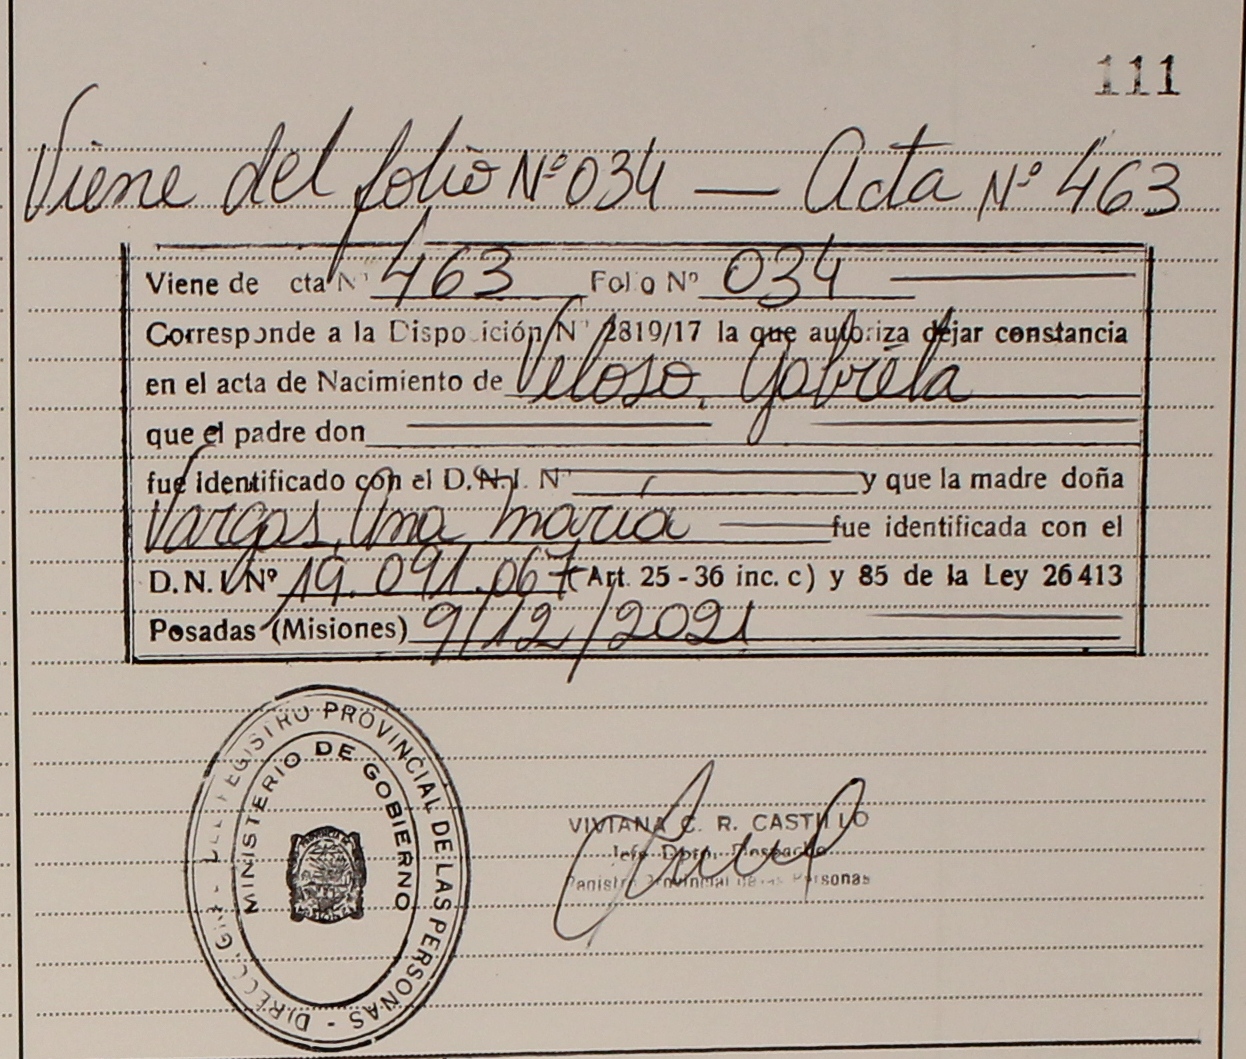 111
Viene del folio Nº 034 — Acta Nº 463
Viene de cta Nº 463 Folio Nº 034
Corresponde a la Disposición Nº 2819/17 la que autoriza dejar constancia
en el acta de Nacimiento de Veloso, Gabriela
que el padre don
fué identificado con el D.N.I. Nº y que la madre doña
Vargas, Ana María fue identificada con el
D.N.I Nº 19.091.067 (Art. 25 - 36 inc. c) y 85 de la Ley 26413
Posadas (Misiones) 9/12/2021
DIRECC. GRAL DEL REGISTRO PROVINCIAL DE LAS PERSONAS -
MINISTERIO DE GOBIERNO
VIVIANA C. R. CASTILLO
Jefe Dpto. Despacho
Registro Provincial de las Personas